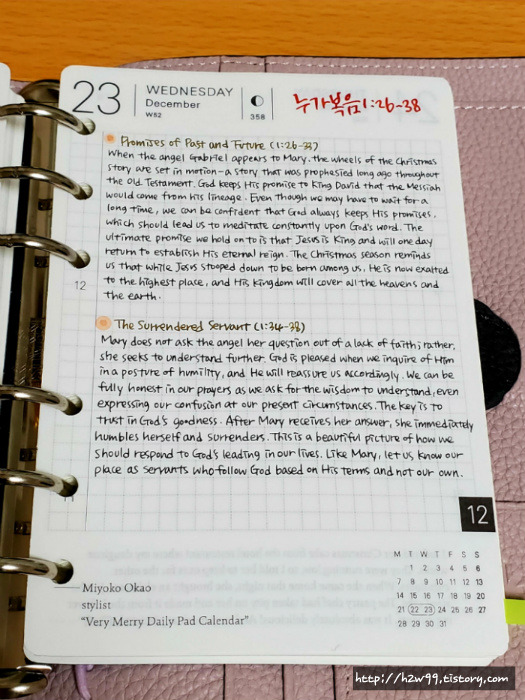 23
WEDNESDAY
December
W52
358
누가복음1:26-38
Promises of Past and Future (1:26-33)
When the angel Gabriel appears to Mary, the wheels of the Christmas
story are set in motion-a story that was prophesied long ago throughout
the Old Testament. God keeps His promise to King David that the Messiah
would come from his lineage. Even though we may have to wait for a
long time, we can be confident that God always keeps His promises,
which should lead us to meditate constantly upon God's word. The
ultimate promise we hold on to is that Jesus is King and will one day
return to establish His eternal reign. The Christmas season reminds
us that while Jesus stooped down to be born among us, He is now exalted
to the highest place, and His kingdom will cover all the heavens and
the earth.
12
The Surrendered Servant (1:34-38)
Mary does not ask the angel her question out of a lack of faith; rather,
she seeks to understand further. God is pleased when we inquire of Him
in a posture of humility, and He will reassure us accordingly. We can be
fully honest in our prayers as we ask for the wisdom to understand, even
expressing our confusion at our present circumstances. The key is to
trust in God's goodness. After Mary receives her answer, she immediately
humbles herself and surrenders. This is a beautiful picture of how we
should respond to God's leading in our lives. Like Mary, let us know our
place as servants who follow God based on His terms and not our own.
12
M T W T F S S
1 2 3 4 5 6
7 8 9 10 11 12 13
14 15 16 17 18 19 20
21 22 23 24 25 26 27
28 29 30 31
Miyoko Okao
stylist
"Very Merry Daily Pad Calendar"
http://h2w99.tistory.com